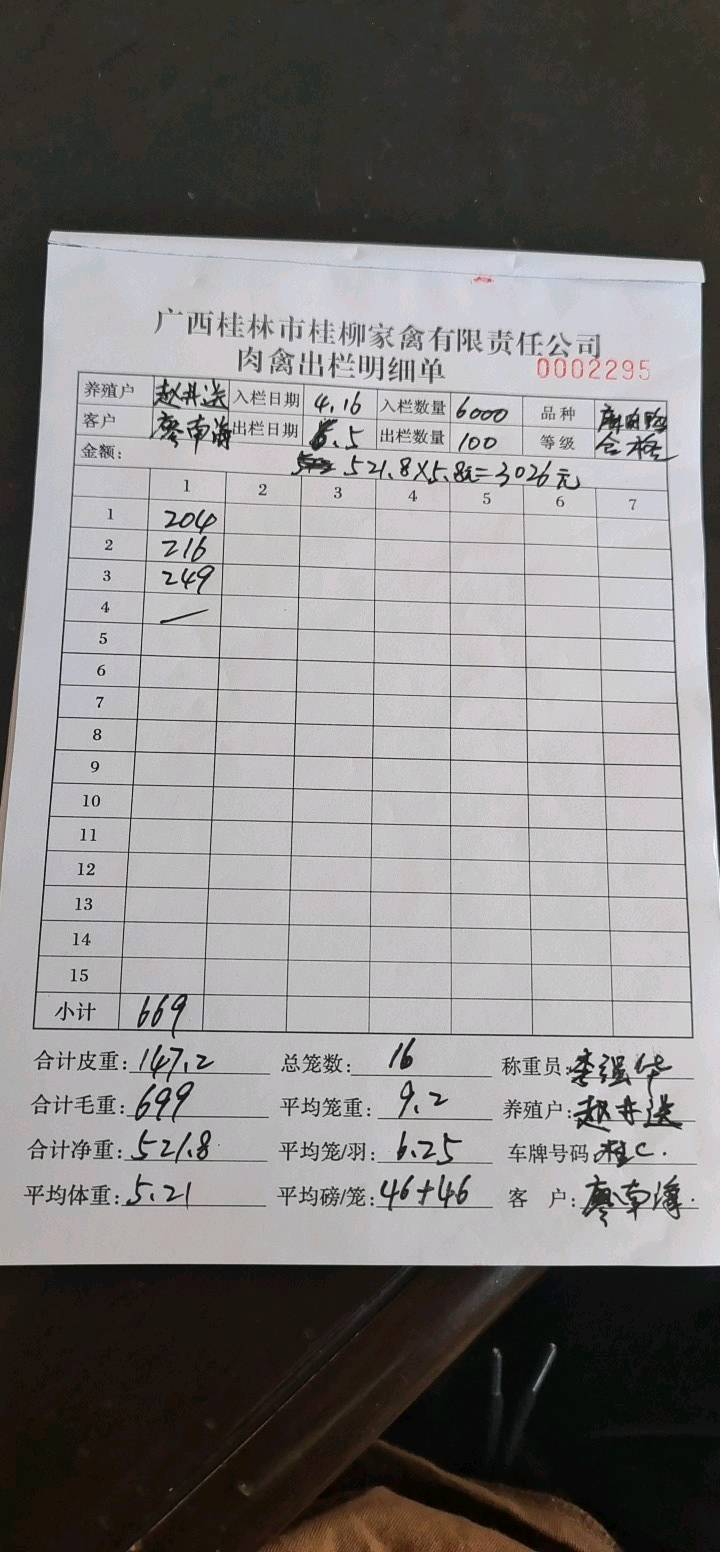 广西桂林市桂柳家禽有限责任公司
肉禽出栏明细单 0002295
养殖户 赵井送 入栏日期 4.16 入栏数量 6000 品种
客户 廖南海 出栏日期 6.5 出栏数量 100 等级 合格
金额: 521.8×5.8元=3026元
1 2 3 4 5 6 7
1 204
2 216
3 249
4 —
5
6
7
8
9
10
11
12
13
14
15
小计 669
合计皮重: 147.2 总笼数: 16 称重员: 李强华
合计毛重: 699 平均笼重: 9.2 养殖户: 赵井送
合计净重: 521.8 平均笼/羽: 6.25 车牌号码 桂C.
平均体重: 5.21 平均磅/笼: 46+46 客户: 廖南海.